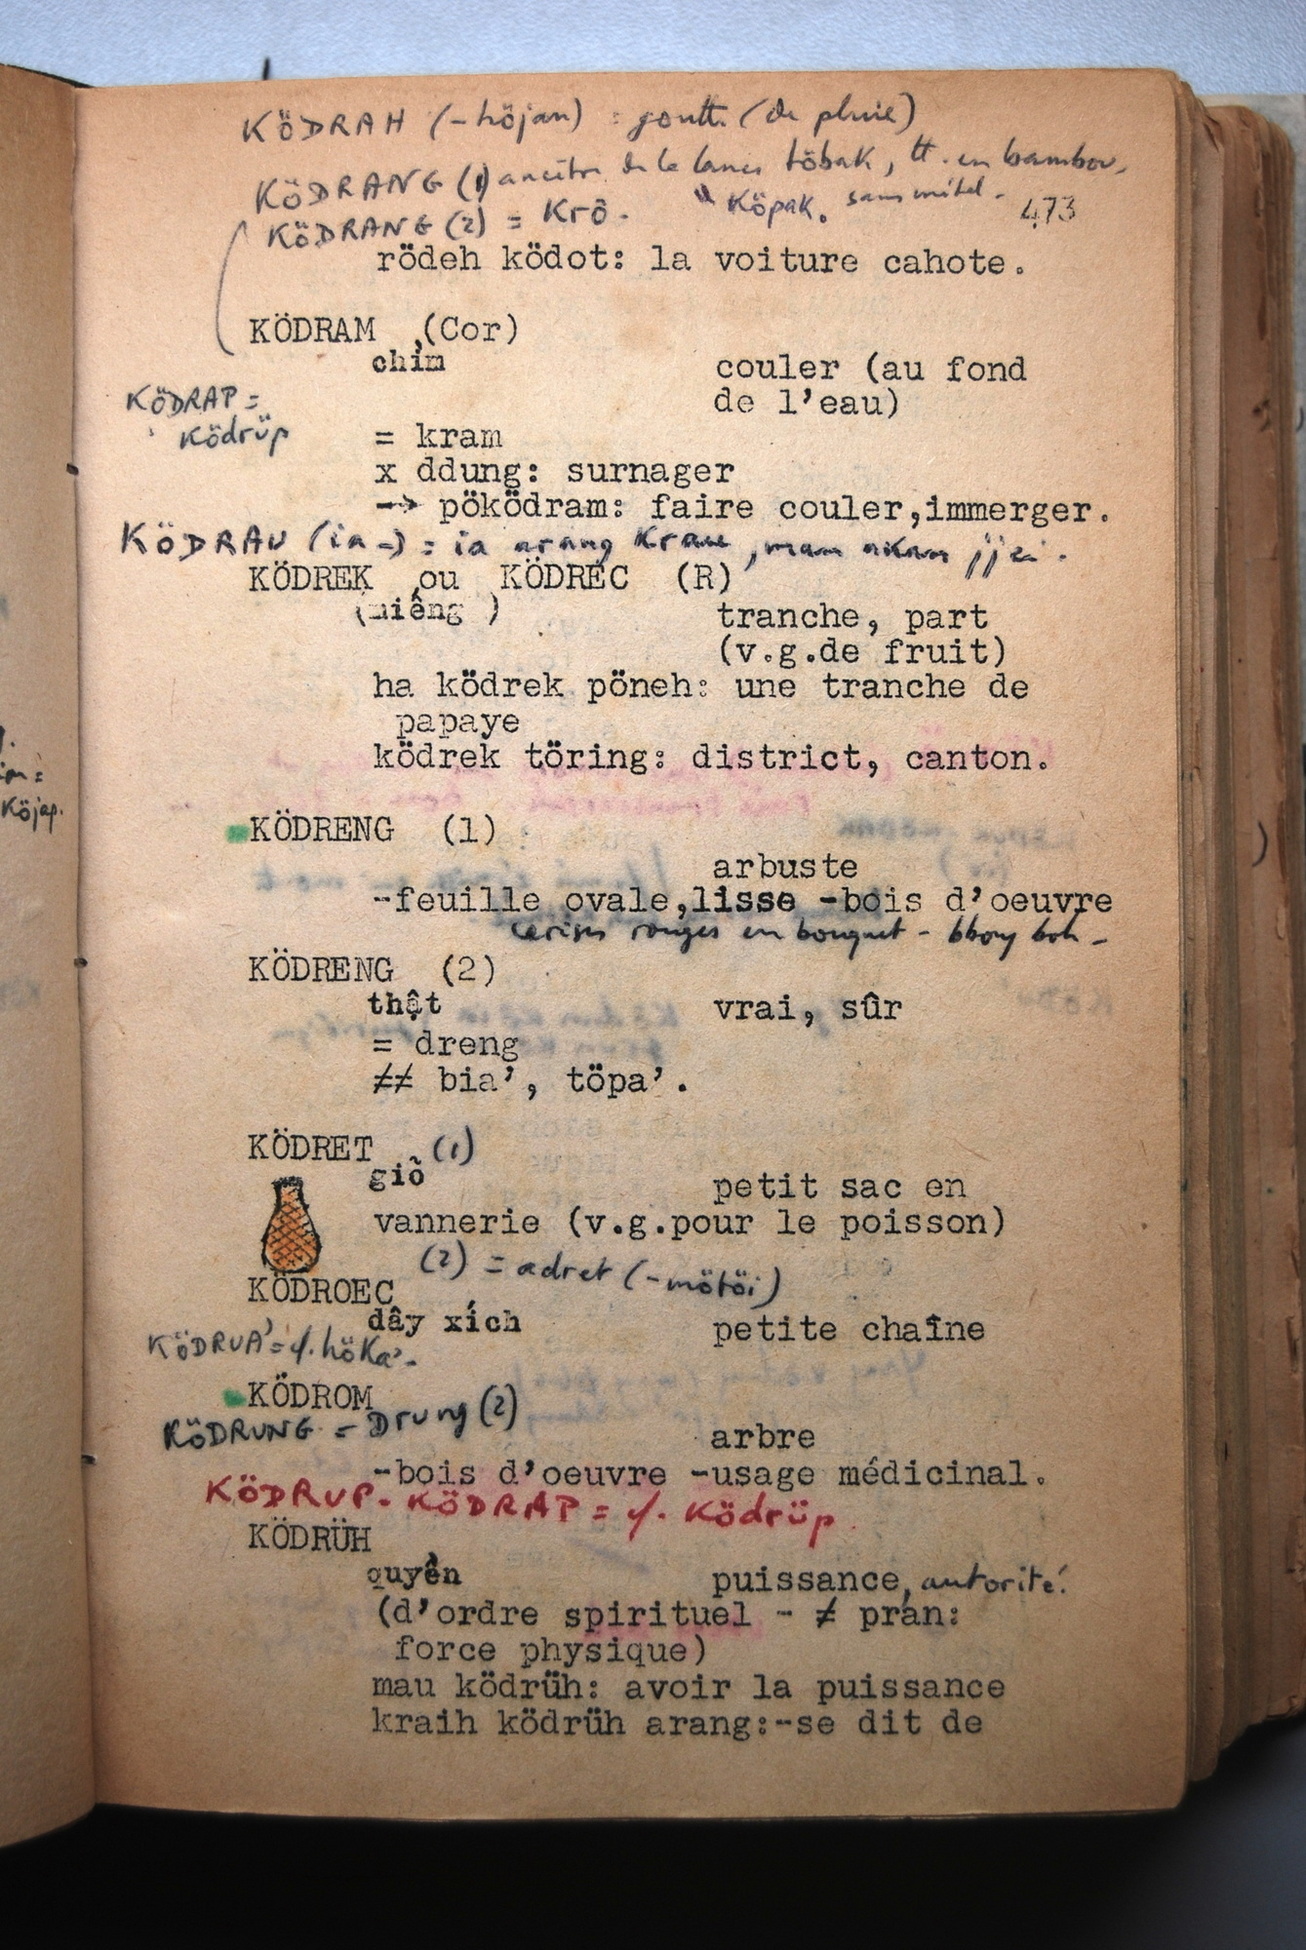 KÖDRAH (-höjan) : goutte (de pluie)
KÖDRANG (1) ancêtre de la lance töbak, tt. en bambou,
" Köpak. sans métal -
KÖDRANG (2) = Krô.
473
rödeh ködot: la voiture cahote.
KÖDRAM (Cor)
chìm
couler (au fond
de l'eau)
KÖDRAP =
Ködrüp
= kram
x ddung: surnager
--> pöködram: faire couler,immerger.
KÖDRAU (ia -) = ia arang Krau, mam akan jjei.
KÖDREK ou KÖDREC (R)
(miêng )
tranche, part
(v.g.de fruit)
ha ködrek pöneh: une tranche de
papaye
ködrek töring: district, canton.
KÖDRENG (1)
arbuste
-feuille ovale,lisse -bois d'oeuvre
cerises rouges en bouquet - bbong boh -
KÖDRENG (2)
thật
vrai, sûr
= dreng
≠≠ bia', töpa'.
KÖDRET (1)
giỏ
petit sac en
vannerie (v.g.pour le poisson)
(2) = adret (-mötöi)
KÖDROEC
dây xích
petite chaîne
KÖDRUA' = cf. höKa'-
KÖDROM
KÖDRUNG = Drung (2)
arbre
-bois d'oeuvre -usage médicinal.
KÖDRUP - KÖDRAP = cf. Ködrüp
KÖDRÜH
quyền
puissance, autorité.
(d'ordre spirituel - ≠ pran:
force physique)
mau ködrüh: avoir la puissance
kraih ködrüh arang:-se dit de
Köjap.